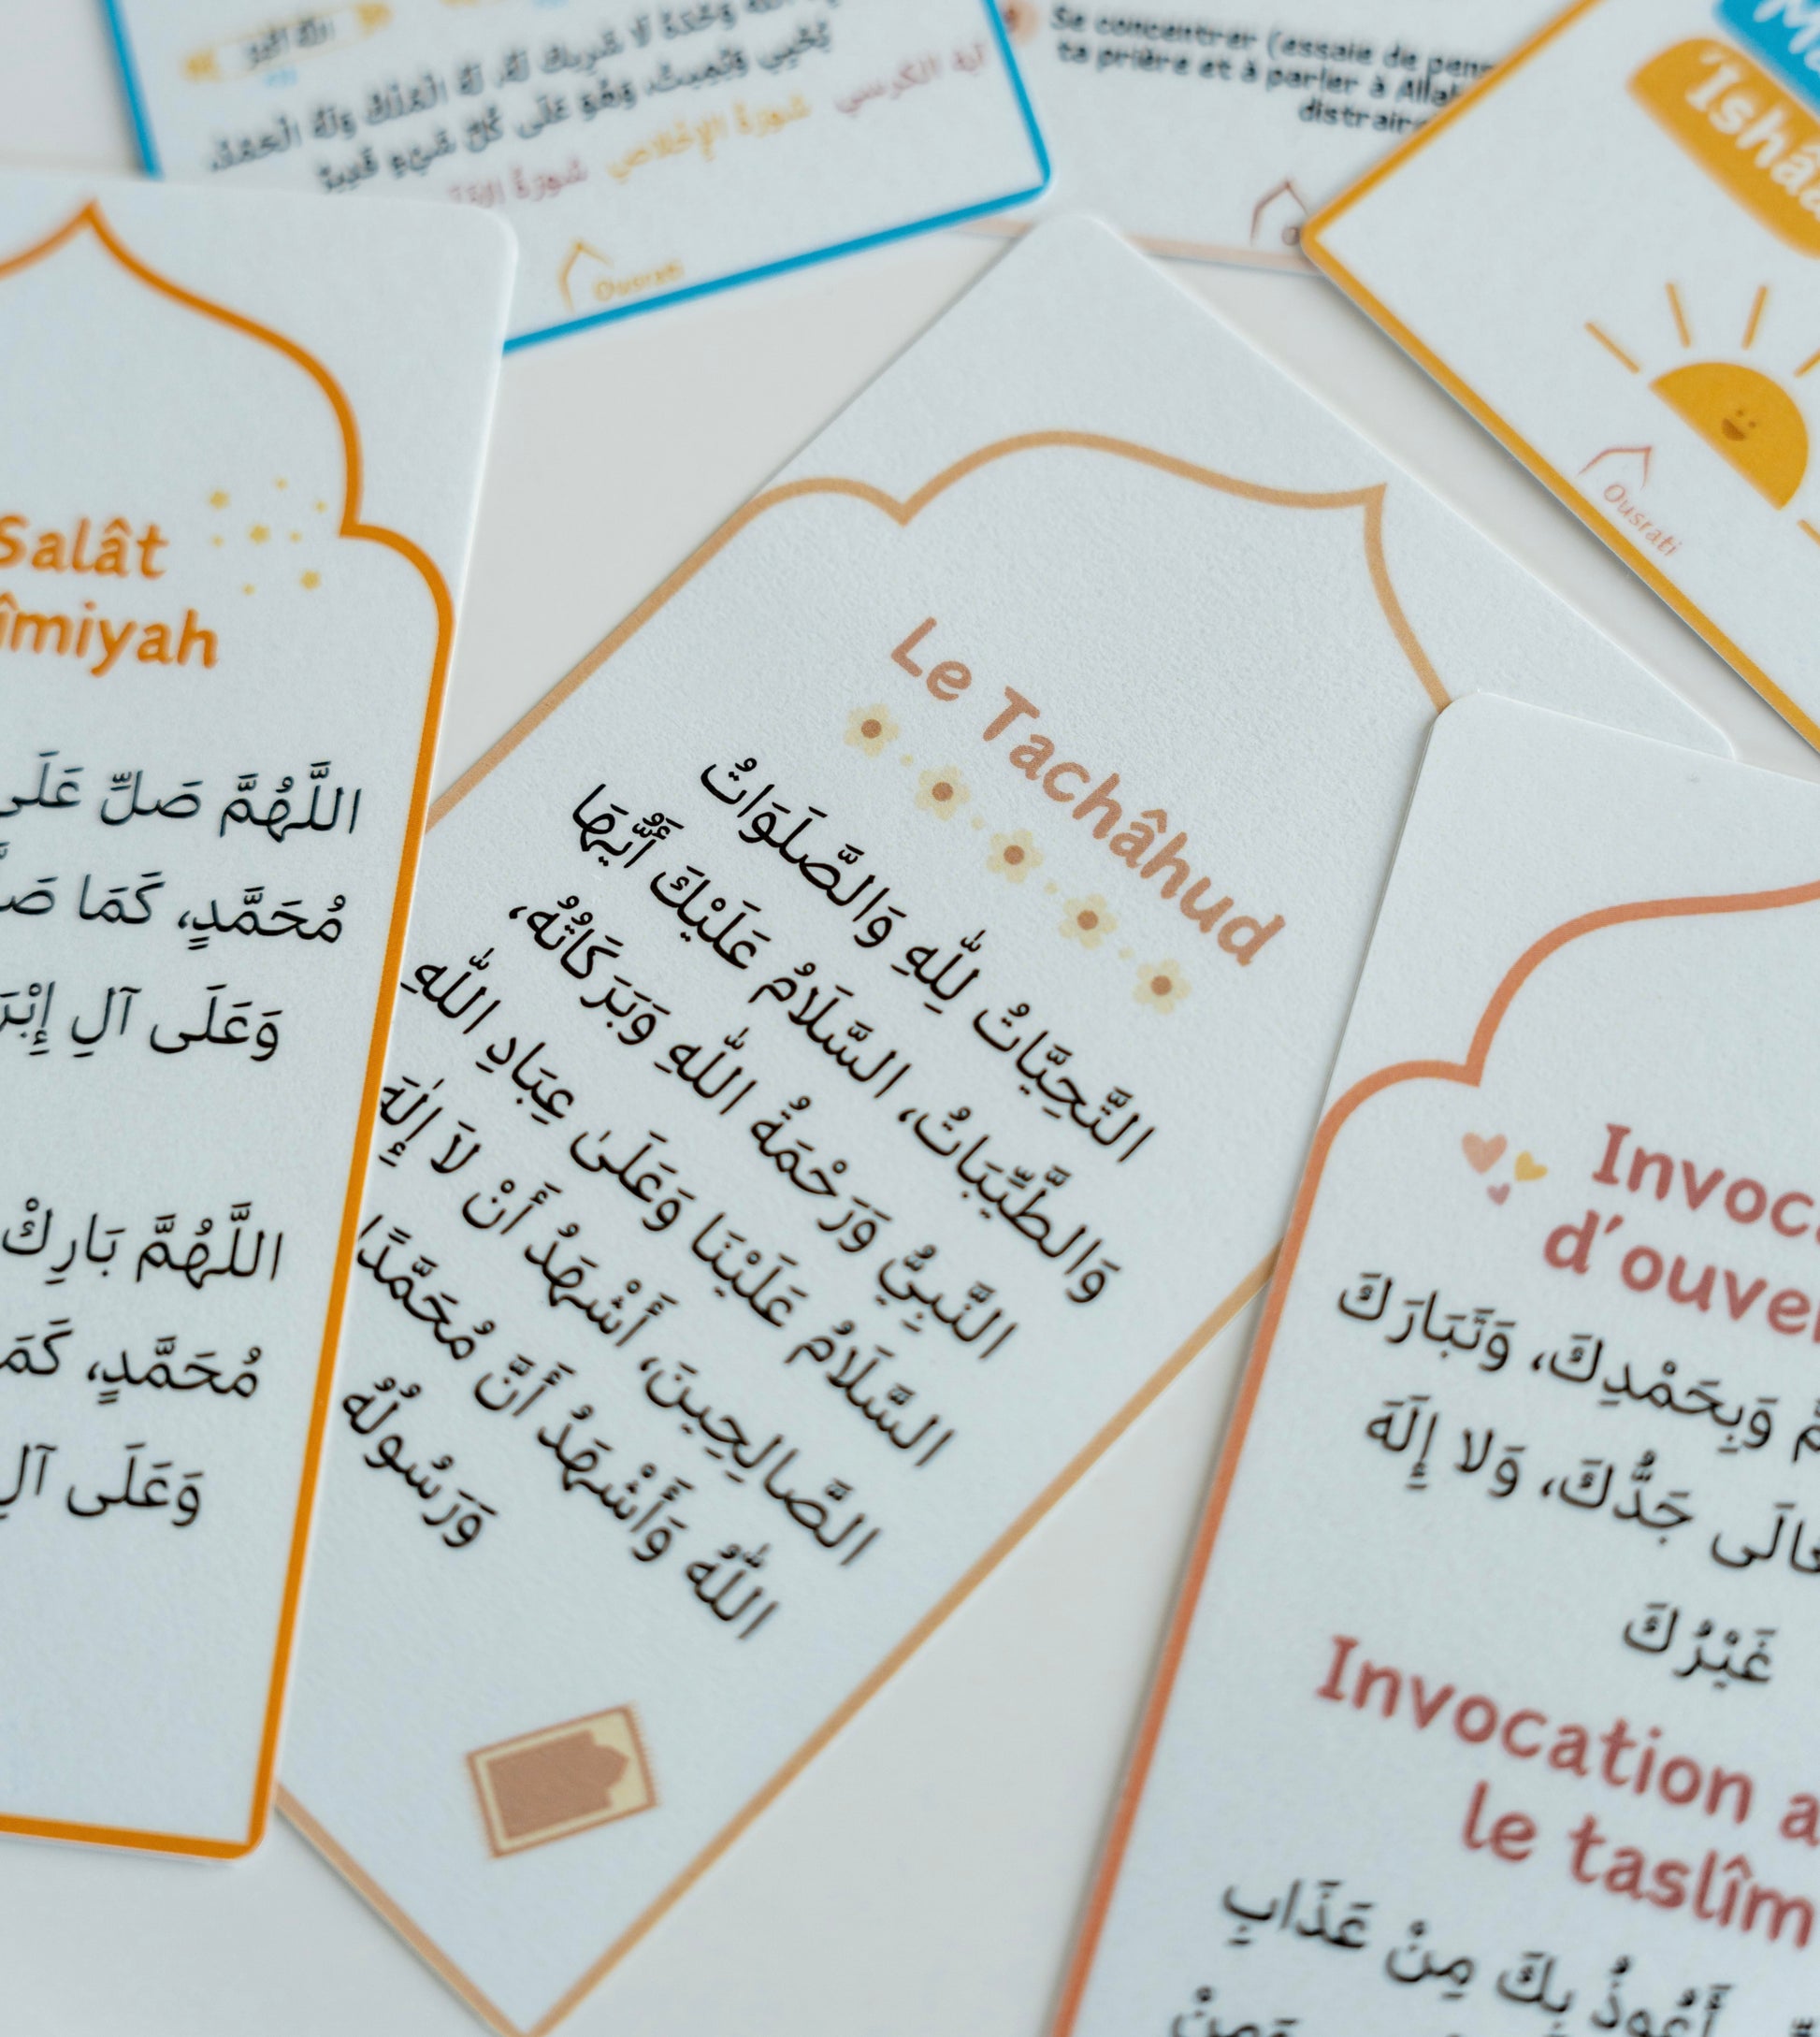 اللّٰهُ أَكْبَرُ
وَحْدَهُ لَا شَرِيكَ لَهُ، لَهُ الْمُلْكُ وَلَهُ الْحَمْدُ،
يُحْيِي وَيُمِيتُ، وَهُوَ عَلَى كُلِّ شَيْءٍ قَدِيرٌ
آية الكرسي سُورَةُ الإِخْلَاصِ سُورَةُ
Ousrati
Se concentrer (essaie de
ta prière et à parler à Allah
'Ishâ
Ousrati
Salât
اللَّهُمَّ صَلِّ عَلَى
مُحَمَّدٍ، كَمَا
وَعَلَى آلِ
اللَّهُمَّ بَارِكْ
مُحَمَّدٍ،
وَعَلَى آلِ
Le Tachâhud
التَّحِيَّاتُ لِلّٰهِ وَالصَّلَوَاتُ
وَالطَّيِّبَاتُ، السَّلَامُ عَلَيْكَ أَيُّهَا
النَّبِيُّ وَرَحْمَةُ اللّٰهِ وَبَرَكَاتُهُ،
السَّلَامُ عَلَيْنَا وَعَلَىٰ عِبَادِ اللّٰهِ
الصَّالِحِينَ، أَشْهَدُ أَنْ لاَ إِلٰهَ
اللّٰهُ وَأَشْهَدُ أَنَّ مُحَمَّدًا
وَرَسُولُهُ
وَبِحَمْدِكَ، وَتَبَارَكَ
جَدُّكَ، وَلا إِلَهَ
غَيْرُكَ
Invocation
le taslîm
أَعُوذُ بِكَ مِنْ عَذَابِ
وَمِنْ